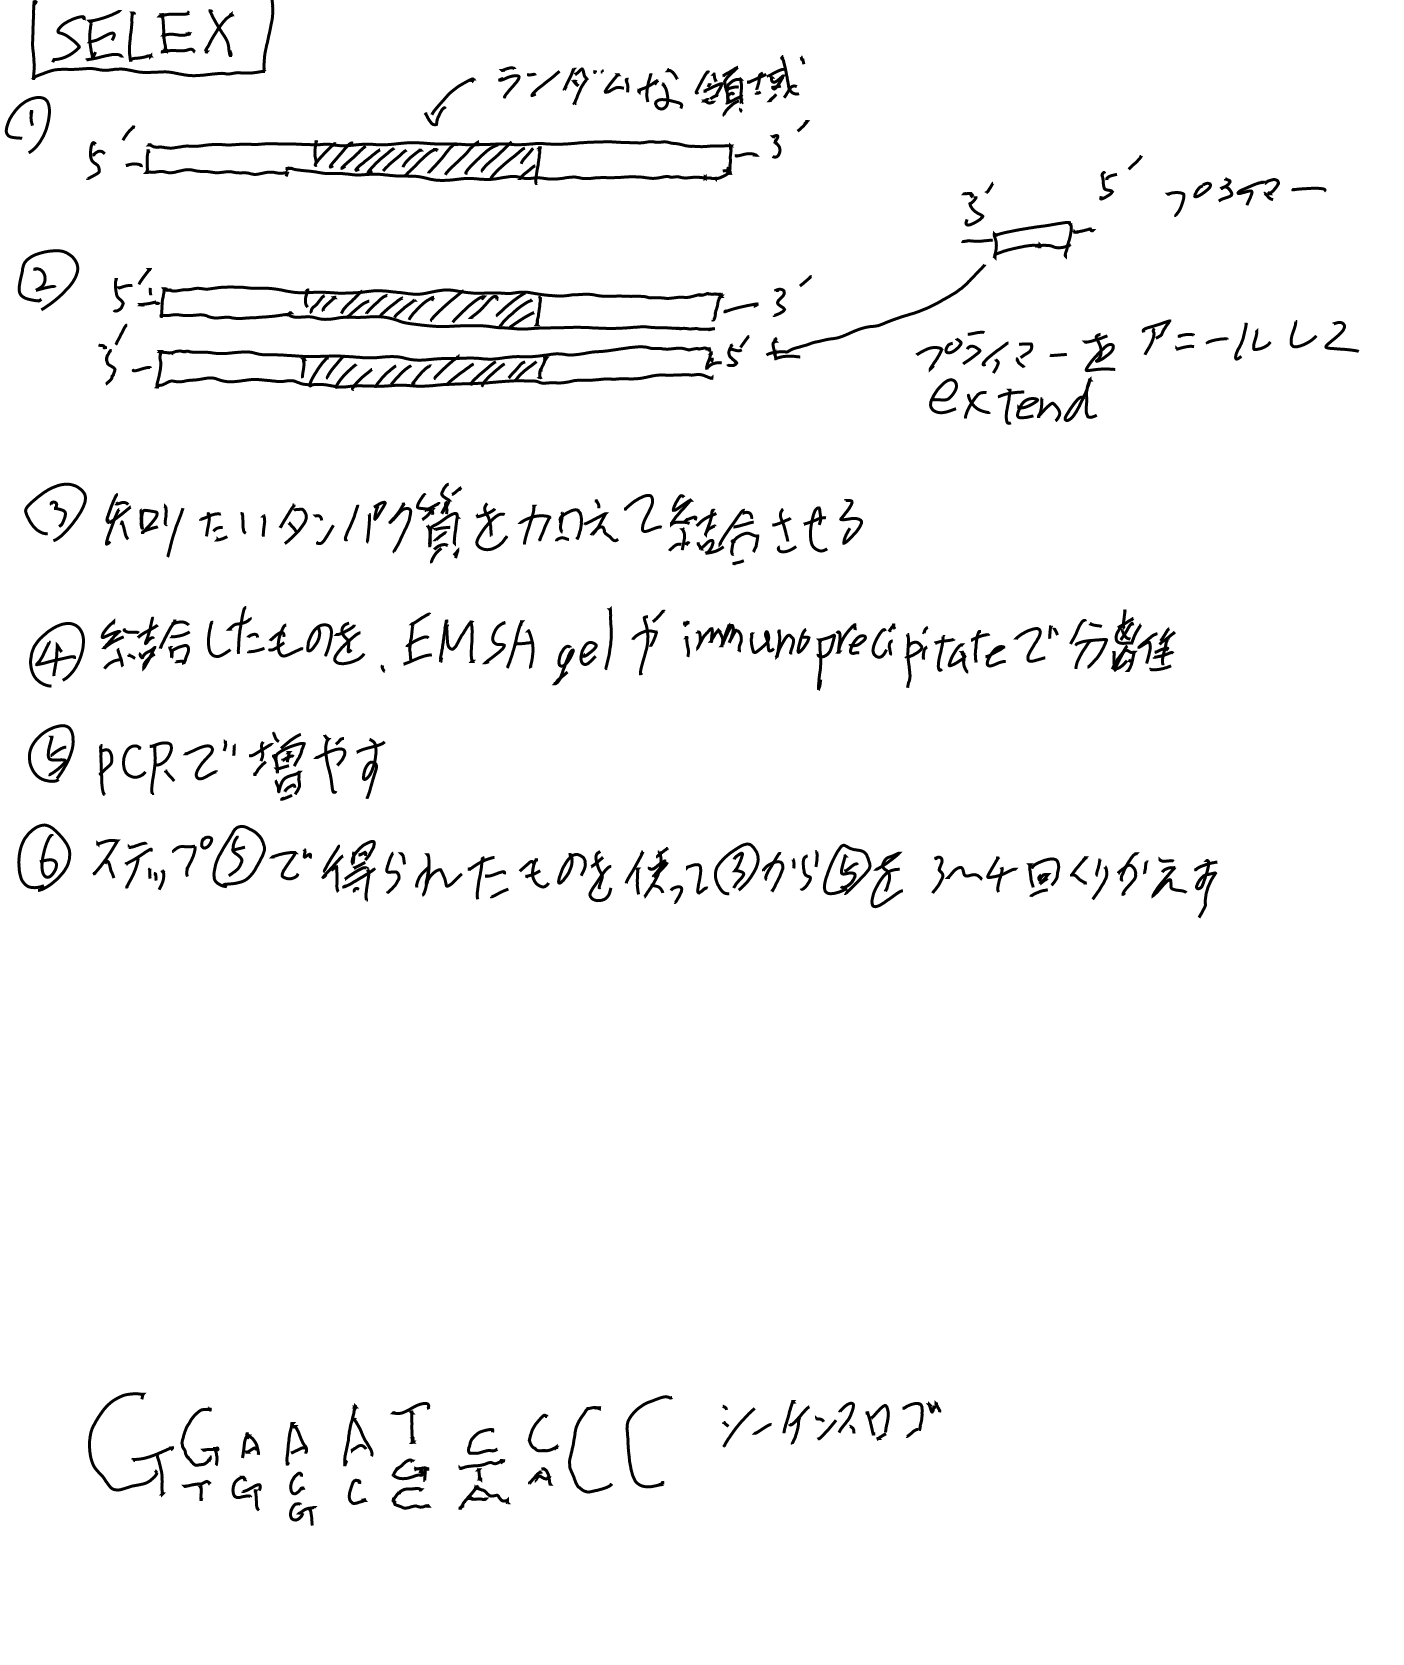 SELEX
ランダムな領域
① 5' 3'
3' 5' プライマー
② 5' 3'
3' 5'
プライマーをアニールして
extend
③ 知りたいタンパク質を加えて結合させる
④ 結合したものを、EMSA gelやimmunoprecipitateで分離
⑤ PCRで増やす
⑥ ステップ⑤で得られたものを使って③から⑤を3〜4回くりかえす
G G A A A T C C C C シーケンスロゴ
T G C C G T A
G C A